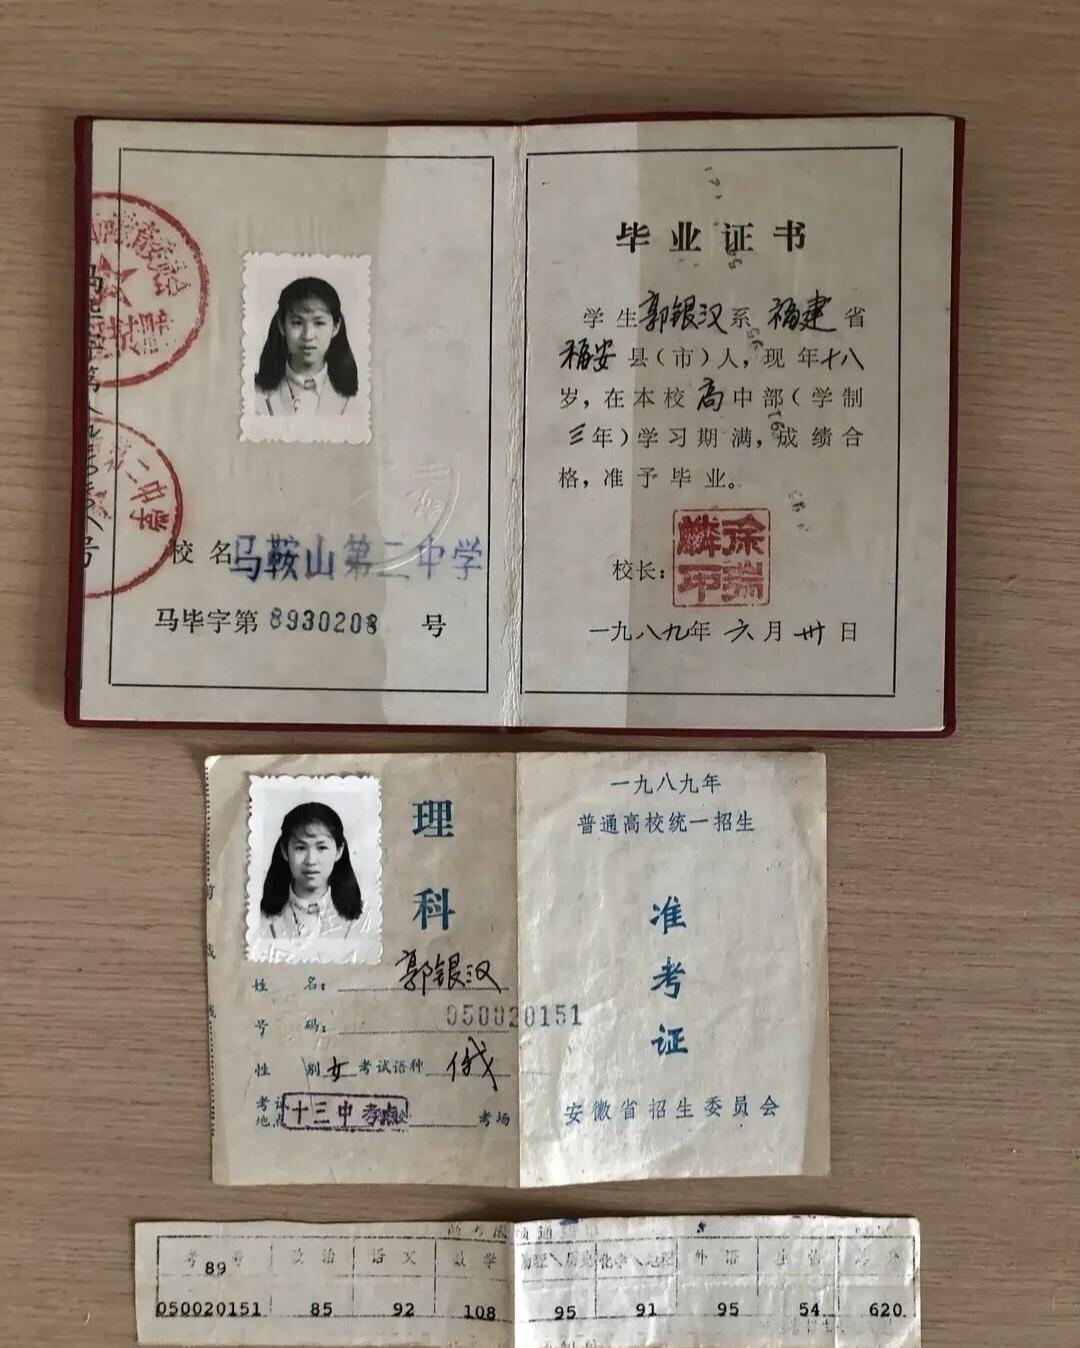 校名马鞍山第二中学
马毕字第8930208号
毕业证书
学生郭银汉系福建省
福安县（市）人，现年十八
岁，在本校高中部（学制
三年）学习期满，成绩合
格，准予毕业。
校长：
徐瑞麟印
一九八九年六月卅日
理科
姓名：郭银汉
号码：050020151
性别女考试语种俄
考试地点十三中考点 考场
一九八九年
普通高校统一招生
准考证
安徽省招生委员会
考号 政治 语文 数学 物理\历史 化学\地理 外语 生物 总分
89
050020151 85 92 108 95 91 95 54 620